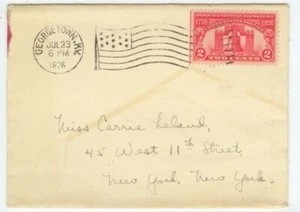 GEORGETOWN, KY.
JUL 23
6 PM
1926
SESQUICENTENNIAL EXPOSITION
1776 1926
2 TWO CENTS 2
Miss Carrie Leland,
45 West 11th Street,
New York, New York.